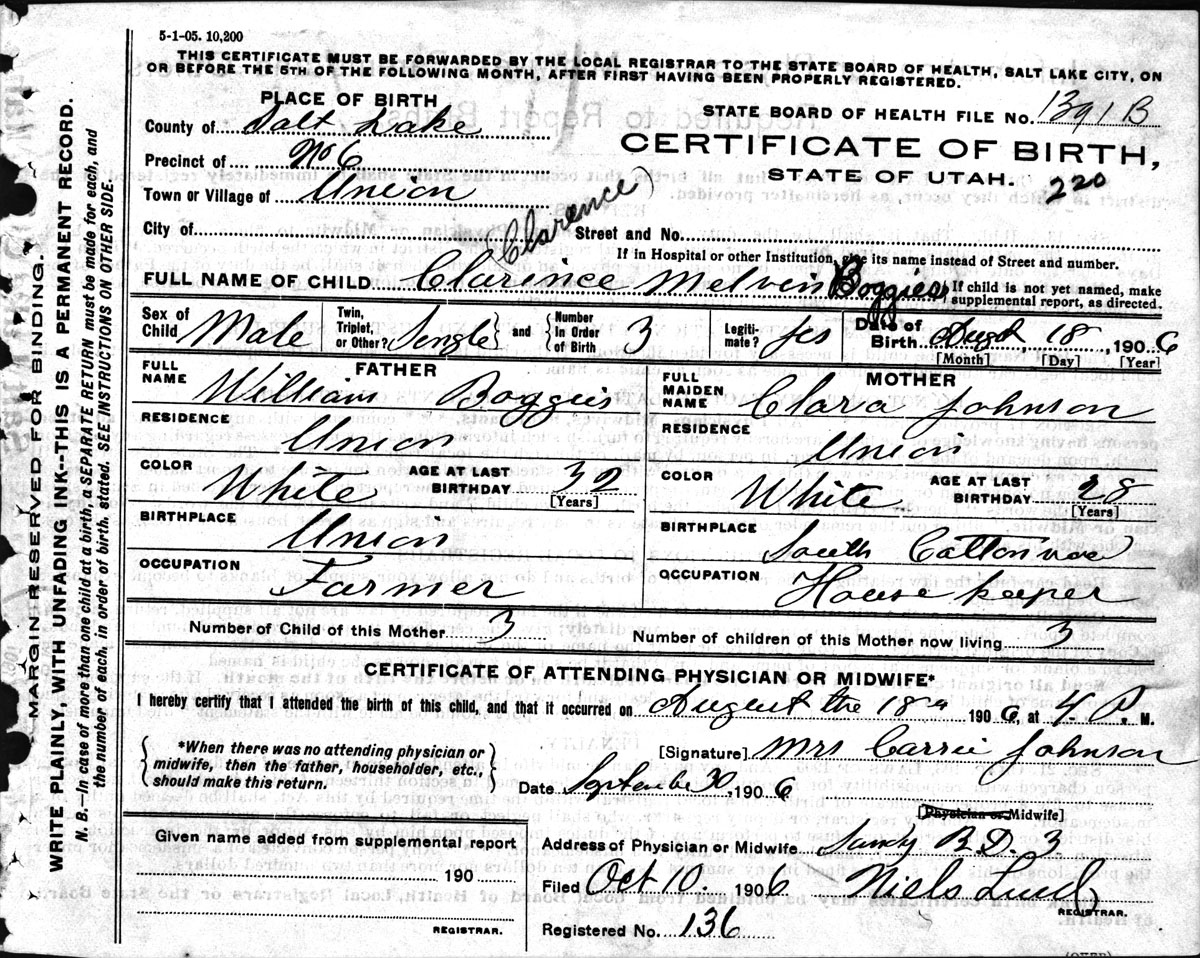 5-1-05. 10,200
THIS CERTIFICATE MUST BE FORWARDED BY THE LOCAL REGISTRAR TO THE STATE BOARD OF HEALTH, SALT LAKE CITY, ON
OR BEFORE THE 5TH OF THE FOLLOWING MONTH, AFTER FIRST HAVING BEEN PROPERLY REGISTERED.
PLACE OF BIRTH
STATE BOARD OF HEALTH FILE No. 1391 B
County of Salt Lake
CERTIFICATE OF BIRTH,
Precinct of No 6
STATE OF UTAH. 220
Town or Village of Union
Clarence
City of Street and No.
If in Hospital or other Institution, give its name instead of Street and number.
FULL NAME OF CHILD Clarince Melvin Boggies
If child is not yet named, make
supplemental report, as directed.
Sex of Child Male
Twin, Triplet, or Other? Sengle and Number In Order of Birth 3
Legiti- mate? yes
Date of Birth Augst 18, 1906
[Month] [Day] [Year]
FATHER
FULL NAME William Boggis
RESIDENCE Union
COLOR White AGE AT LAST BIRTHDAY 32
[Years]
BIRTHPLACE Union
OCCUPATION Farmer
MOTHER
FULL MAIDEN NAME Clara Johnson
RESIDENCE Union
COLOR White AGE AT LAST BIRTHDAY 28
[Years]
BIRTHPLACE South
OCCUPATION House keeper
Number of Child of this Mother 3 Number of children of this Mother now living 3
CERTIFICATE OF ATTENDING PHYSICIAN OR MIDWIFE*
I hereby certify that I attended the birth of this child, and that it occurred on August the 18 1906, at 4 P. M.
*When there was no attending physician or
midwife, then the father, householder, etc.,
should make this return.
[Signature] Mrs Carrie Johnson
Date September 30, 1906
[Physician or Midwife]
Address of Physician or Midwife Sandy R D. 3
Given name added from supplemental report
190
REGISTRAR.
Filed Oct 10. 1906 Niels Lind
REGISTRAR.
Registered No. 136
(OVER)
MARGIN RESERVED FOR BINDING.
WRITE PLAINLY, WITH UNFADING INK--THIS IS A PERMANENT RECORD.
N. B.—In case of more than one child at a birth, a SEPARATE RETURN must be made for each, and
the number of each, in order of birth, stated. SEE INSTRUCTIONS ON OTHER SIDE.